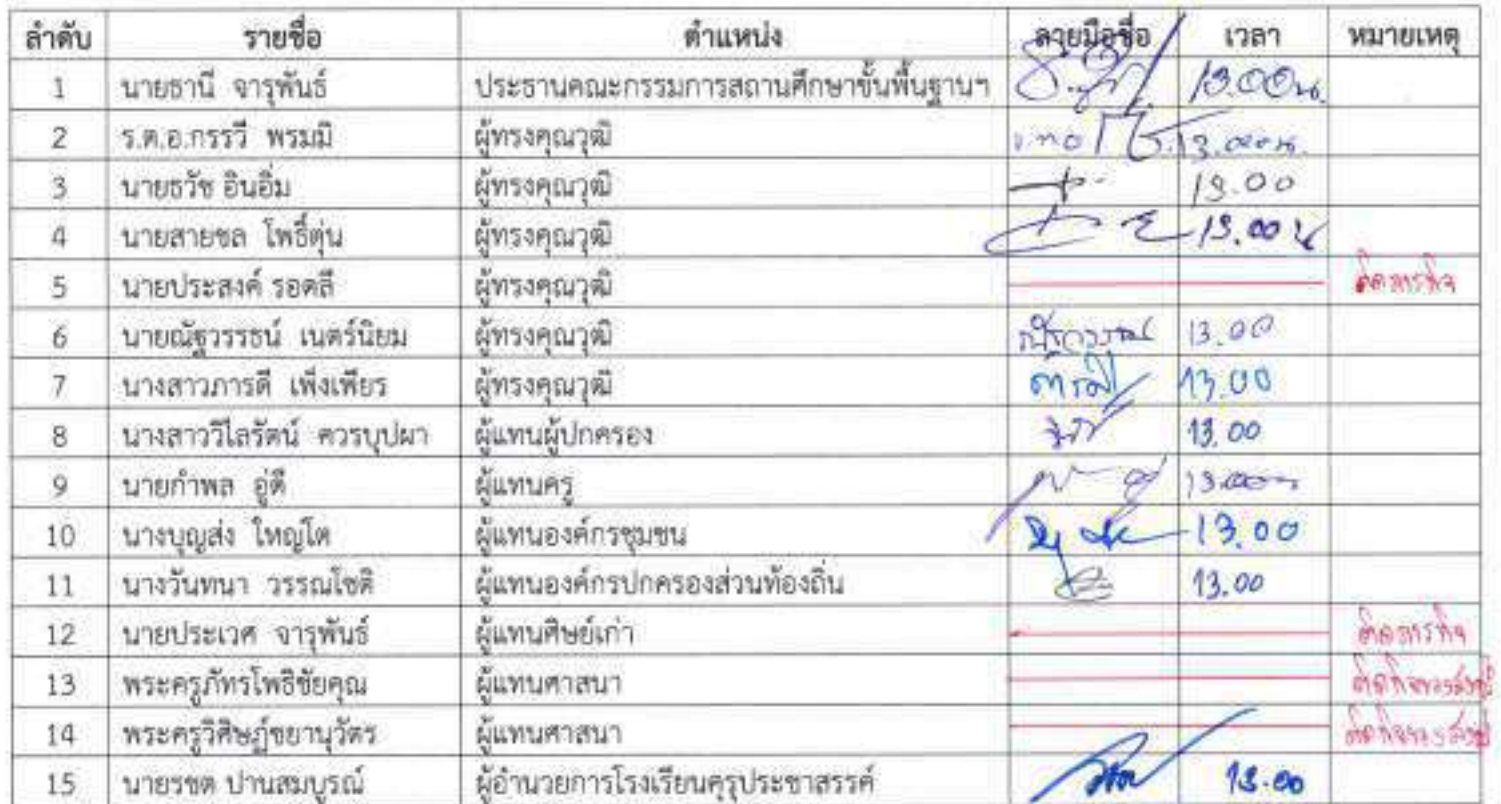 ลำดับ รายชื่อ ตำแหน่ง ลายมือชื่อ เวลา หมายเหตุ
1 นายธานี จารุพันธ์ ประธานคณะกรรมการสถานศึกษาขั้นพื้นฐานฯ 13.00น.
2 ร.ต.อ.กรรวี พรมมิ ผู้ทรงคุณวุฒิ 13.00น.
3 นายธวัช อินอิ่ม ผู้ทรงคุณวุฒิ 13.00
4 นายสายชล โพธิ์ตุ่น ผู้ทรงคุณวุฒิ 13.00 น
5 นายประสงค์ รอดลี ผู้ทรงคุณวุฒิ ติดภารกิจ
6 นายณัฐวรรธน์ เนตร์นิยม ผู้ทรงคุณวุฒิ 13.00
7 นางสาวภารดี เพ็งเพียร ผู้ทรงคุณวุฒิ ภารดี 13.00
8 นางสาววิไลรัตน์ ควรบุปผา ผู้แทนผู้ปกครอง 13.00
9 นายกำพล อู่ดี ผู้แทนครู 13.00น
10 นางบุญส่ง ใหญ่โต ผู้แทนองค์กรชุมชน 13.00
11 นางวันทนา วรรณโชติ ผู้แทนองค์กรปกครองส่วนท้องถิ่น 13.00
12 นายประเวศ จารุพันธ์ ผู้แทนศิษย์เก่า ติดภารกิจ
13 พระครูภัทรโพธิชัยคุณ ผู้แทนศาสนา ติดกิจของสงฆ์
14 พระครูวิศิษฏ์ชยานุวัตร ผู้แทนศาสนา ติดกิจของสงฆ์
15 นายรชต ปานสมบูรณ์ ผู้อำนวยการโรงเรียนคุรุประชาสรรค์ 13.00